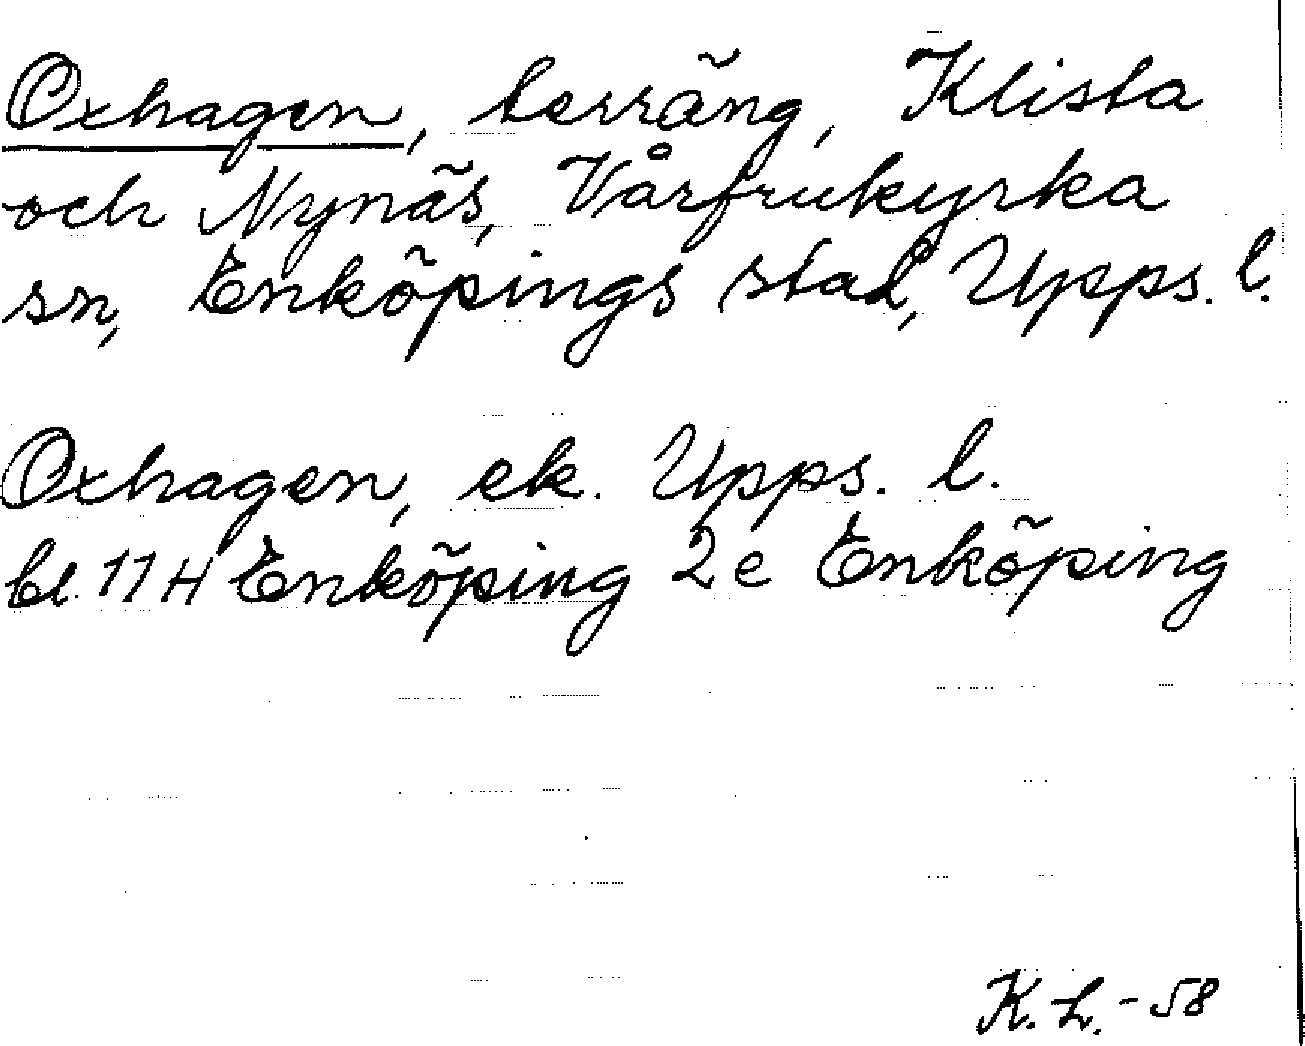 Oxhagen, terräng, Klista
och Nynäs, Vårfrukyrka
sn, Enköpings stad, Upps. l.
Oxhagen, ek. Upps. l.
bl. 11 H Enköping 2 e Enköping
K. L. - 58